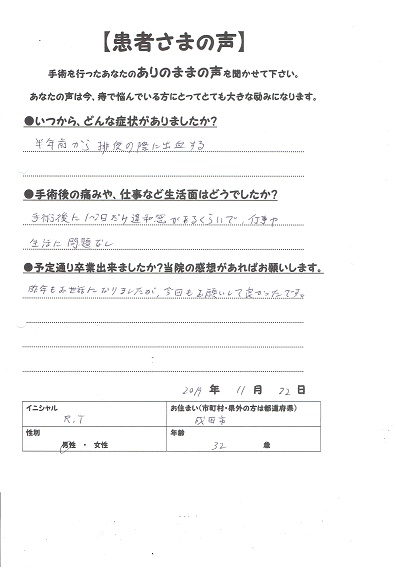 【患者さまの声】
手術を行ったあなたのありのままの声を聞かせて下さい。
あなたの声は今、痔で悩んでいる方にとってとても大きな励みになります。
●いつから、どんな症状がありましたか?
半年前から排便の際に出血する
●手術後の痛みや、仕事など生活面はどうでしたか?
手術後に1~2日だけ違和感があるくらいで、仕事や
生活に問題なし
●予定通り卒業出来ましたか?当院の感想があればお願いします。
昨年もお世話になりましたが、今回もお願いして良かったです。
2019 年 11 月 22 日
イニシャル お住まい(市町村・県外の方は都道府県)
R.T 成田市
性別 年齢
男性 ・ 女性 32 歳